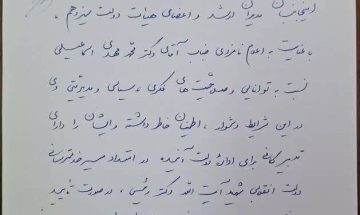 اینجانبان مدیران ارشد و اعضای هیات دولت سیزدهم ،
با عنایت به اعلام نامزدی جناب آقای دکتر محمد مهدی اسماعیلی
نسبت به توانایی و صلاحیت های فکری ، سیاسی و مدیریتی وی
در این شرایط دشوار ، اطمینان خاطر داشته و ایشان را دارای
برای اداره دولت آینده در امتداد مسیر خدمت‌رسانی
دولت انقلابی شهید آیت الله دکتر رئیسی ، در صورت تایید